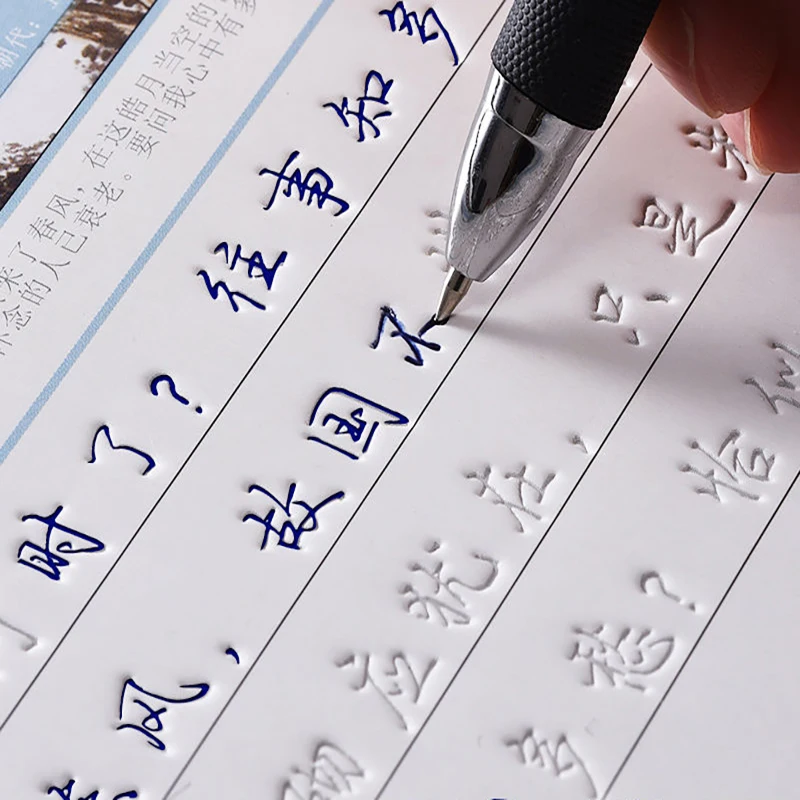 朝代：
来了春风，在这皓月当空的
怀念的人已衰老。要问我心中有多
时了？往事知多
风，故国不
砌应犹在，只是朱
多愁？恰似